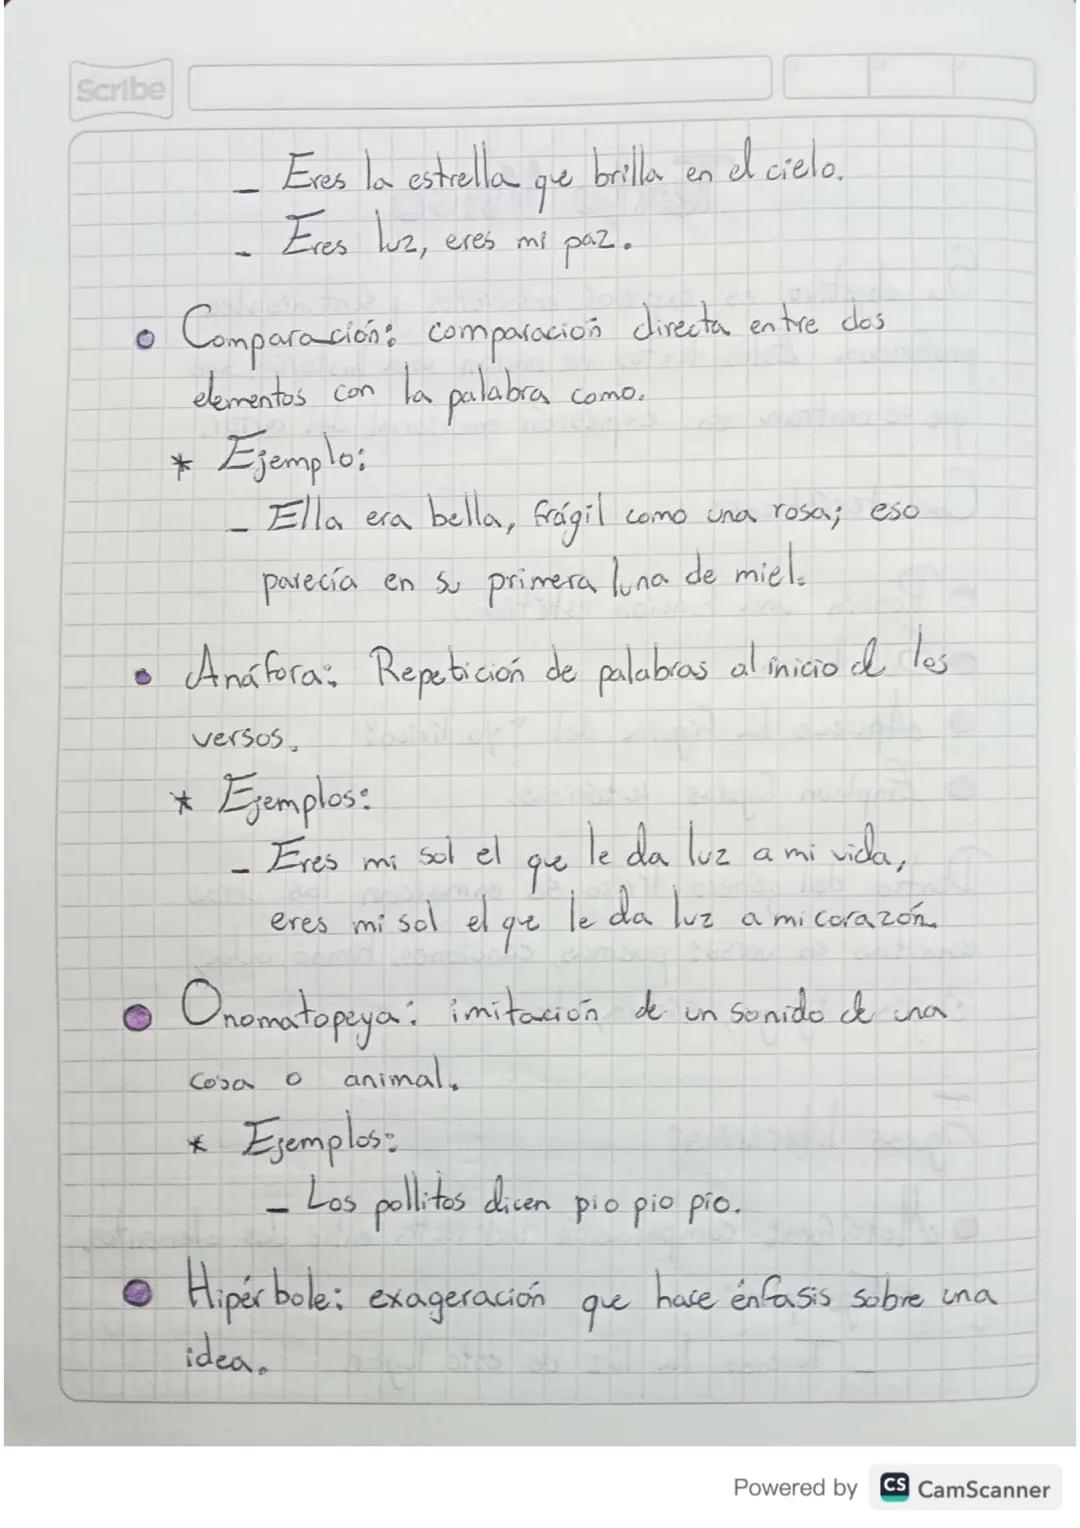 Scribe
- Eres la estrella que brilla en el cielo.
- Eres luz, eres mi paz.
Comparación: comparación directa entre dos
elementos con la palabra como.
* Ejemplo:
- Ella era bella, frágil como una rosa; eso
parecía en su primera luna de miel.
Anáfora: Repetición de palabras al inicio de los
versos.
* Ejemplos:
- Eres mi sol el que le da luz a mi vida,
eres mi sol el que le da luz a mi corazón.
Onomatopeya: imitación de un sonido de una
cosa o animal.
* Ejemplos:
- Los pollitos dicen pio pio pío.
Hipérbole: exageración que hace énfasis sobre una
idea.
Powered by CS CamScanner